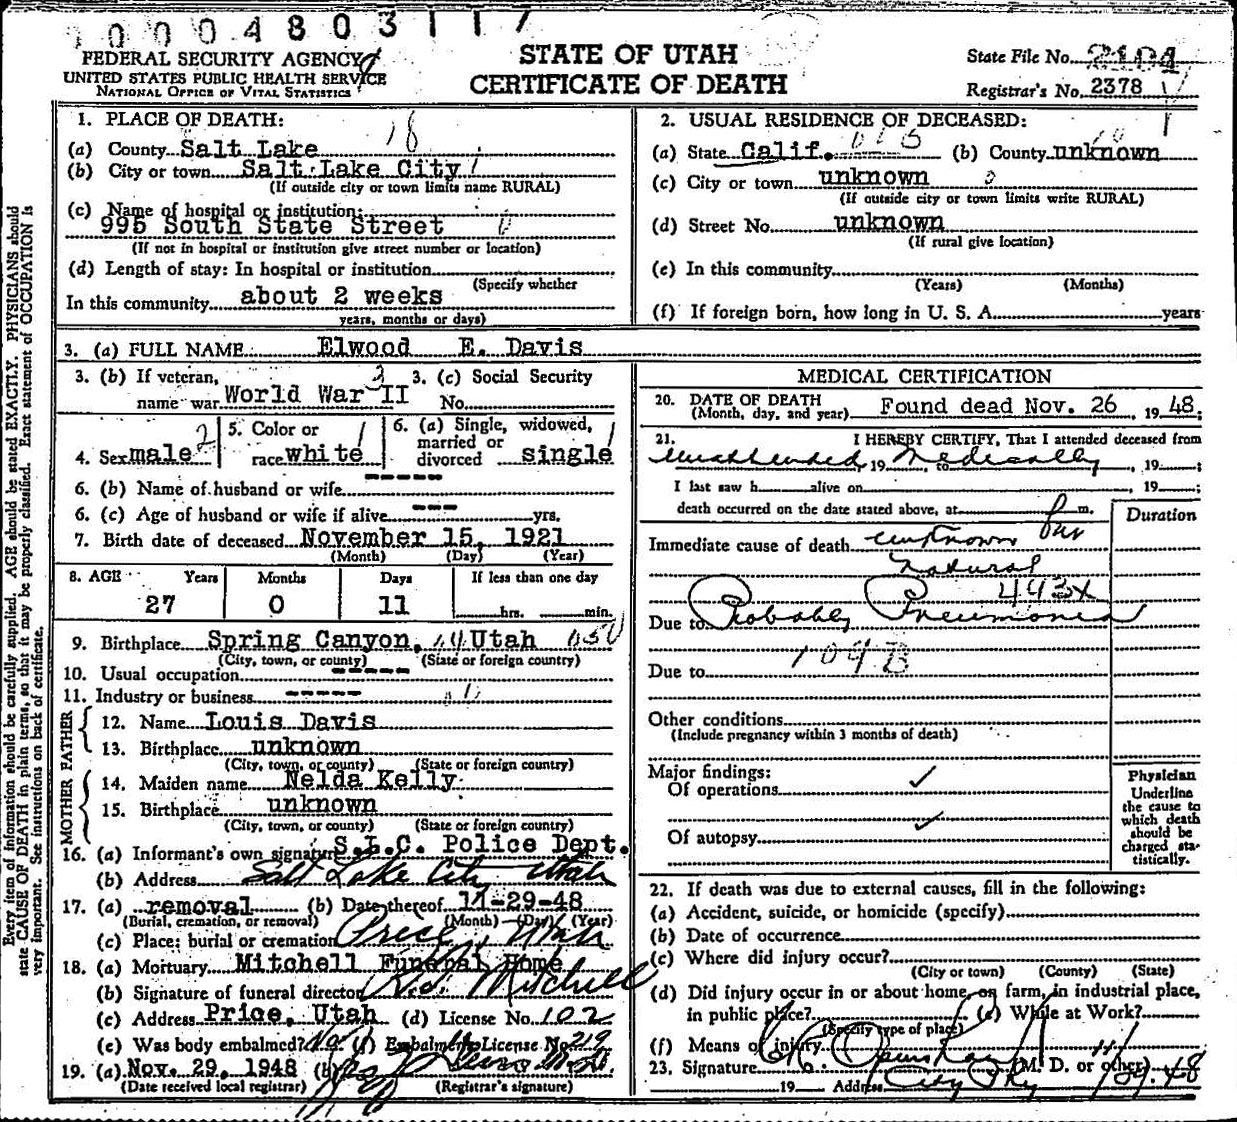 0004803117
FEDERAL SECURITY AGENCY
UNITED STATES PUBLIC HEALTH SERVICE
NATIONAL OFFICE OF VITAL STATISTICS
STATE OF UTAH
CERTIFICATE OF DEATH
State File No.
Registrar's No. 2378
1. PLACE OF DEATH: 18
(a) County Salt Lake
(b) City or town Salt Lake City
(If outside city or town limits name RURAL)
(c) Name of hospital or institution:
995 South State Street
(If not in hospital or institution give street number or location)
(d) Length of stay: In hospital or institution
(Specify whether
In this community about 2 weeks
years, months or days)
2. USUAL RESIDENCE OF DECEASED:
(a) State Calif. (b) County unknown
(c) City or town unknown
(If outside city or town limits write RURAL)
(d) Street No. unknown
(If rural give location)
(e) In this community
(Years) (Months)
(f) If foreign born, how long in U. S. A. years
3. (a) FULL NAME Elwood E. Davis
3. (b) If veteran, name war World War II 3. (c) Social Security No.
4. Sex male 2 5. Color or race white 1 6. (a) Single, widowed, married or divorced single 1
6. (b) Name of husband or wife
6. (c) Age of husband or wife if alive --- yrs.
7. Birth date of deceased November 15, 1921
(Month) (Day) (Year)
8. AGE Years Months Days If less than one day
27 0 11 hrs. min.
9. Birthplace Spring Canyon, Utah
(City, town, or county) (State or foreign country)
10. Usual occupation -----
11. Industry or business -----
FATHER
12. Name Louis Davis
13. Birthplace unknown
(City, town, or county) (State or foreign country)
MOTHER
14. Maiden name Nelda Kelly
15. Birthplace unknown
(City, town, or county) (State or foreign country)
16. (a) Informant's own signature S.L.C. Police Dept.
(b) Address Salt Lake City Utah
17. (a) removal (b) Date thereof 11-29-48
(Burial, cremation, or removal) (Month) (Day) (Year)
(c) Place: burial or cremation Price, Utah
18. (a) Mortuary Mitchell Funeral Home
(b) Signature of funeral director Mitchell
(c) Address Price, Utah (d) License No. 102
(e) Was body embalmed? (f) Embalmer License No. 219
19. (a) Nov. 29, 1948 (b)
(Date received local registrar) (Registrar's signature)
MEDICAL CERTIFICATION
20. DATE OF DEATH
(Month, day, and year) Found dead Nov. 26, 1948;
21. I HEREBY CERTIFY, That I attended deceased from
unattended 19 , to medically , 19 ;
I last saw h alive on , 19 ;
death occurred on the date stated above, at P m.
Duration
Immediate cause of death unknown
Natural
443X
Due to Probably Pneumonia
109B
Due to
Other conditions
(Include pregnancy within 3 months of death)
Major findings:
Of operations ✓
Of autopsy ✓
Physician
Underline
the cause to
which death
should be
charged sta-
tistically.
22. If death was due to external causes, fill in the following:
(a) Accident, suicide, or homicide (specify)
(b) Date of occurrence
(c) Where did injury occur?
(City or town) (County) (State)
(d) Did injury occur in or about home, on farm, in industrial place,
in public place? (e) While at Work?
(Specify type of place)
(f) Means of injury
23. Signature (M. D. or other)
19 Address City Phy
Every item of information should be carefully supplied. AGE should be stated EXACTLY. PHYSICIANS should
state CAUSE OF DEATH in plain terms, so that it may be properly classified. Exact statement of OCCUPATION is
very important. See instructions on back of certificate.